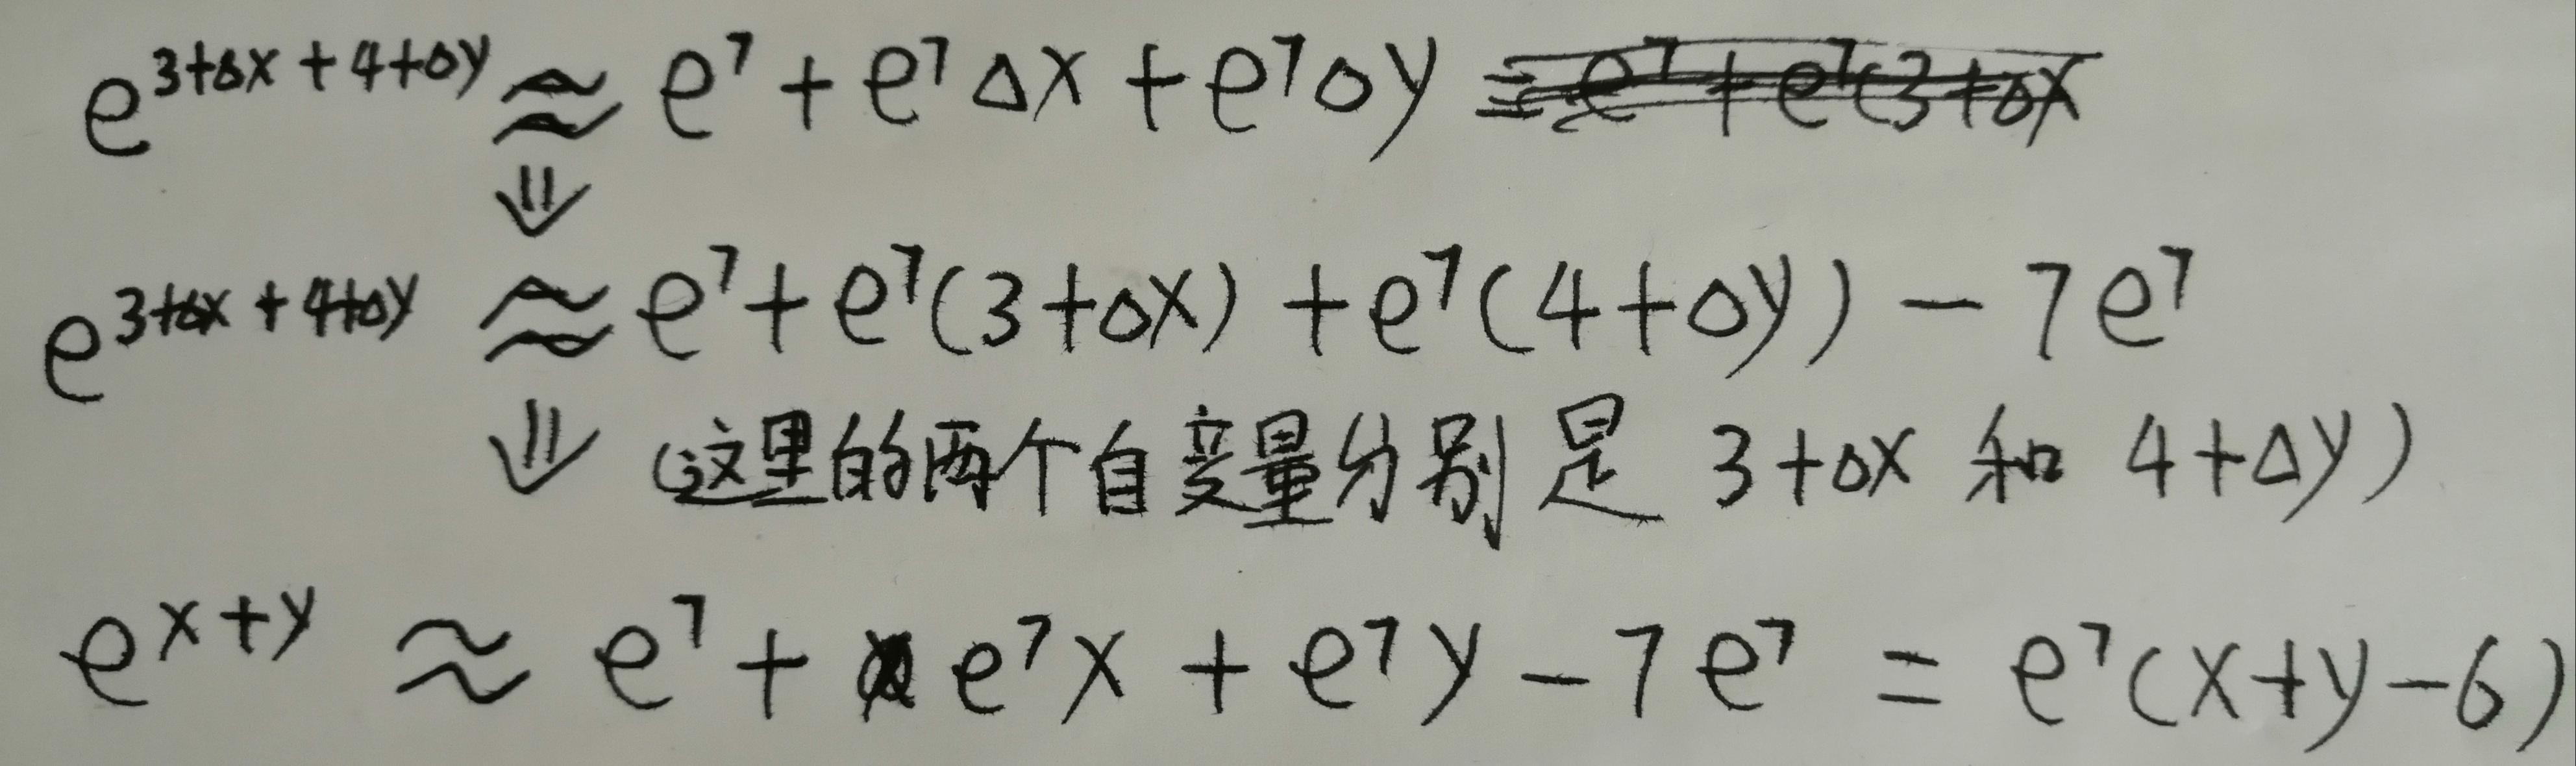 e^{3+Δx+4+Δy} ≈ e^7 + e^7 Δx + e^7 Δy = e^7 + e^7(3+Δx
⇓
e^{3+Δx+4+Δy} ≈ e^7 + e^7(3+Δx) + e^7(4+Δy) - 7e^7
⇓ (这里的两个自变量分别是 3+Δx 和 4+Δy)
e^{x+y} ≈ e^7 + e^7x + e^7y - 7e^7 = e^7(x+y-6)